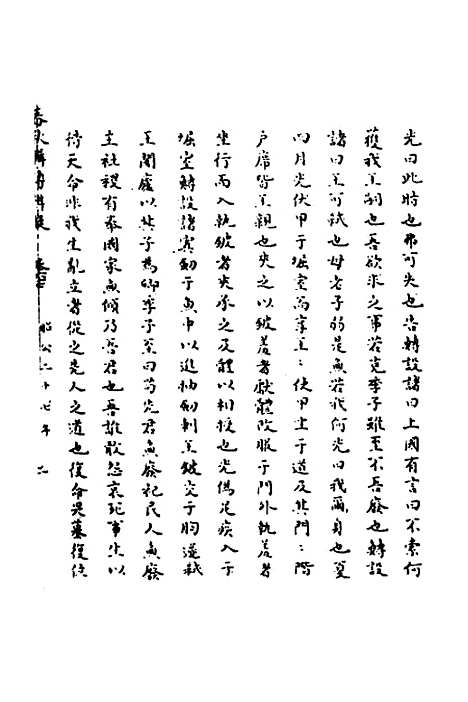 光曰此時也弗可失也告鱄設諸曰上國有言曰不索何
獲我王嗣也吾欲求之事若克季子雖至不吾廢也鱄設
諸曰王可弒也母老子弱是無若我何光曰我爾身也夏
四月光伏甲于堀室而享王〻使甲坐于道及其門〻階
戶席皆王親也夾之以鈹羞者獻體改服于門外執羞者
坐行而入執鈹者夾承之及體以相授也光偽足疾入于
堀室鱄設諸寘劍于魚中以進抽劍刺王鈹交于胸遂弒
王闔廬以其子為卿季子至曰苟先君無廢祀民人無廢
主社稷有奉國家無傾乃吾君也吾誰敢怨哀死事生以
待天命非我生亂立者從之先人之道也復命哭墓復位
春秋
昭公二十七年